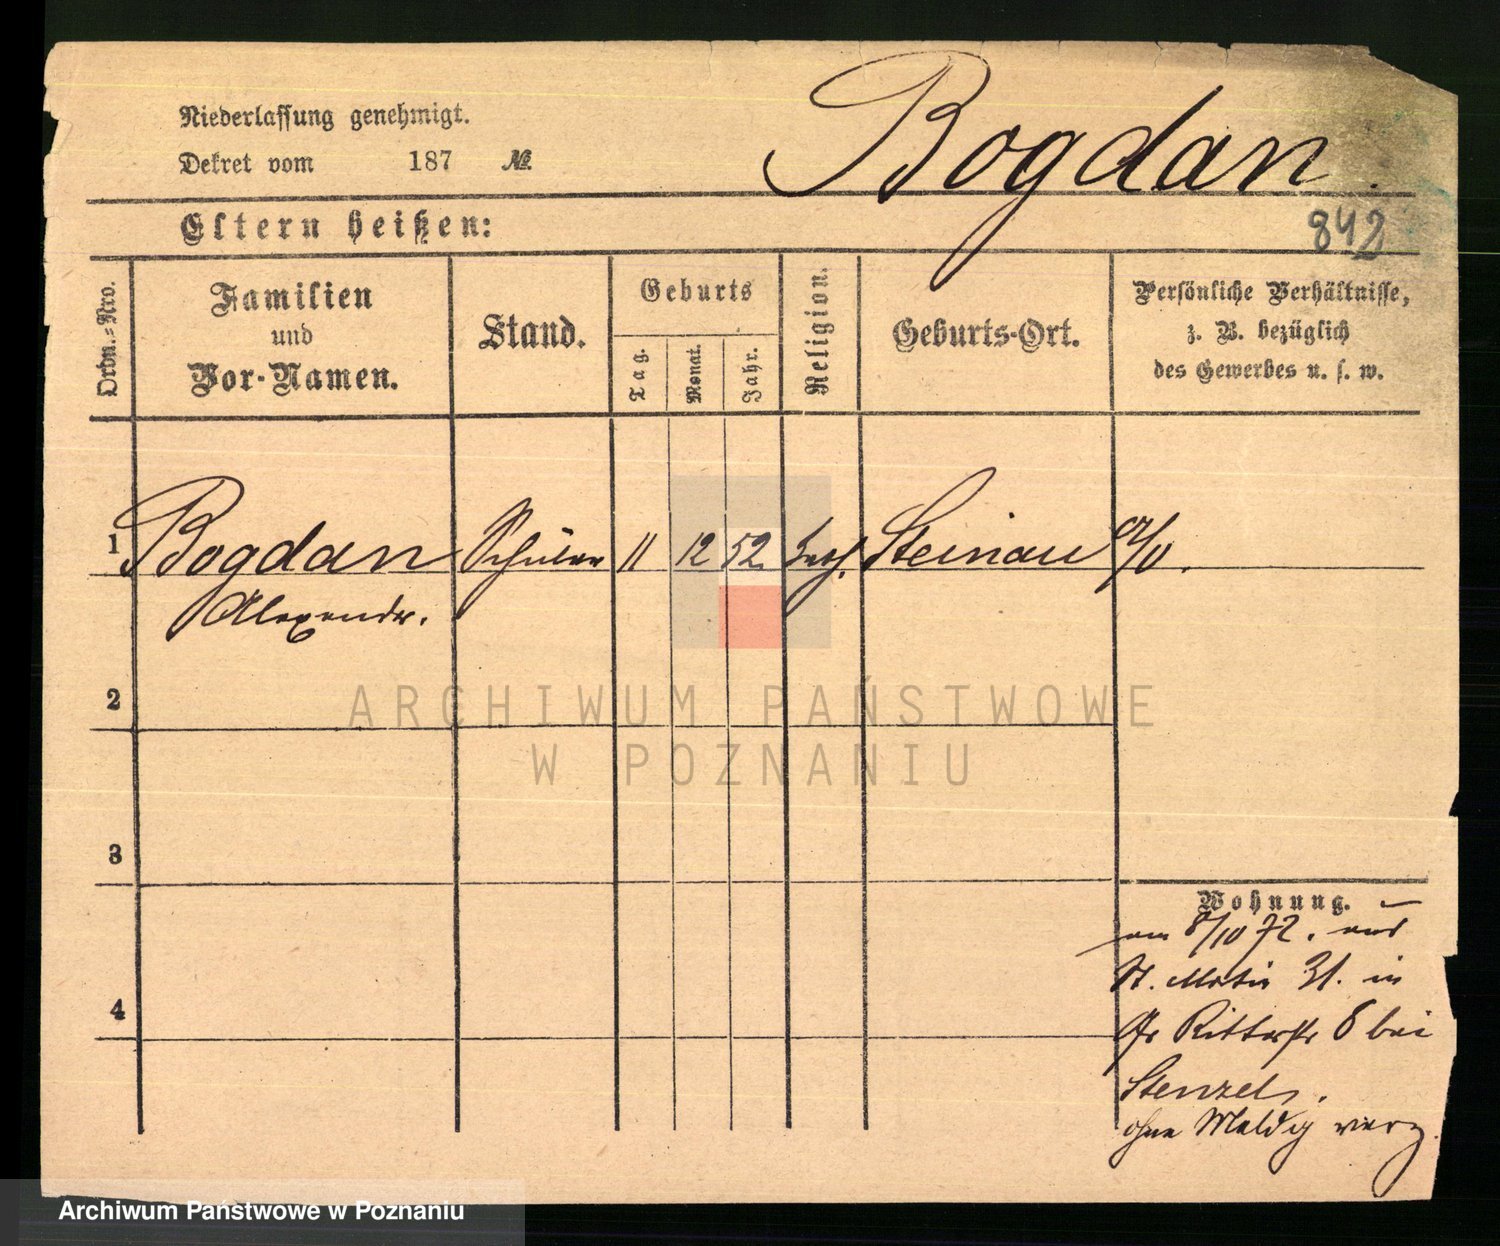 Bogdan.
Niederlassung genehmigt.
Dekret vom 187 №
Eltern heißen:
842
Ordn.-Nro.
Familien
und
Vor-Namen.
Stand.
Geburts
Tag.
Monat.
Jahr.
Religion.
Geburts-Ort.
Persönliche Verhältnisse,
z. B. bezüglich
des Gewerbes u. s. w.
1 Bogdan Schüler 11 12 52 Steinau a/O.
Alexander.
2
3
4
Wohnung.
am 8/10 72. aus
St. Martin 31. in
Gr Ritterstr 8 bei
Stenzel.
ohne Meldg verz.
ARCHIWUM PAŃSTWOWE
W POZNANIU
Archiwum Państwowe w Poznaniu